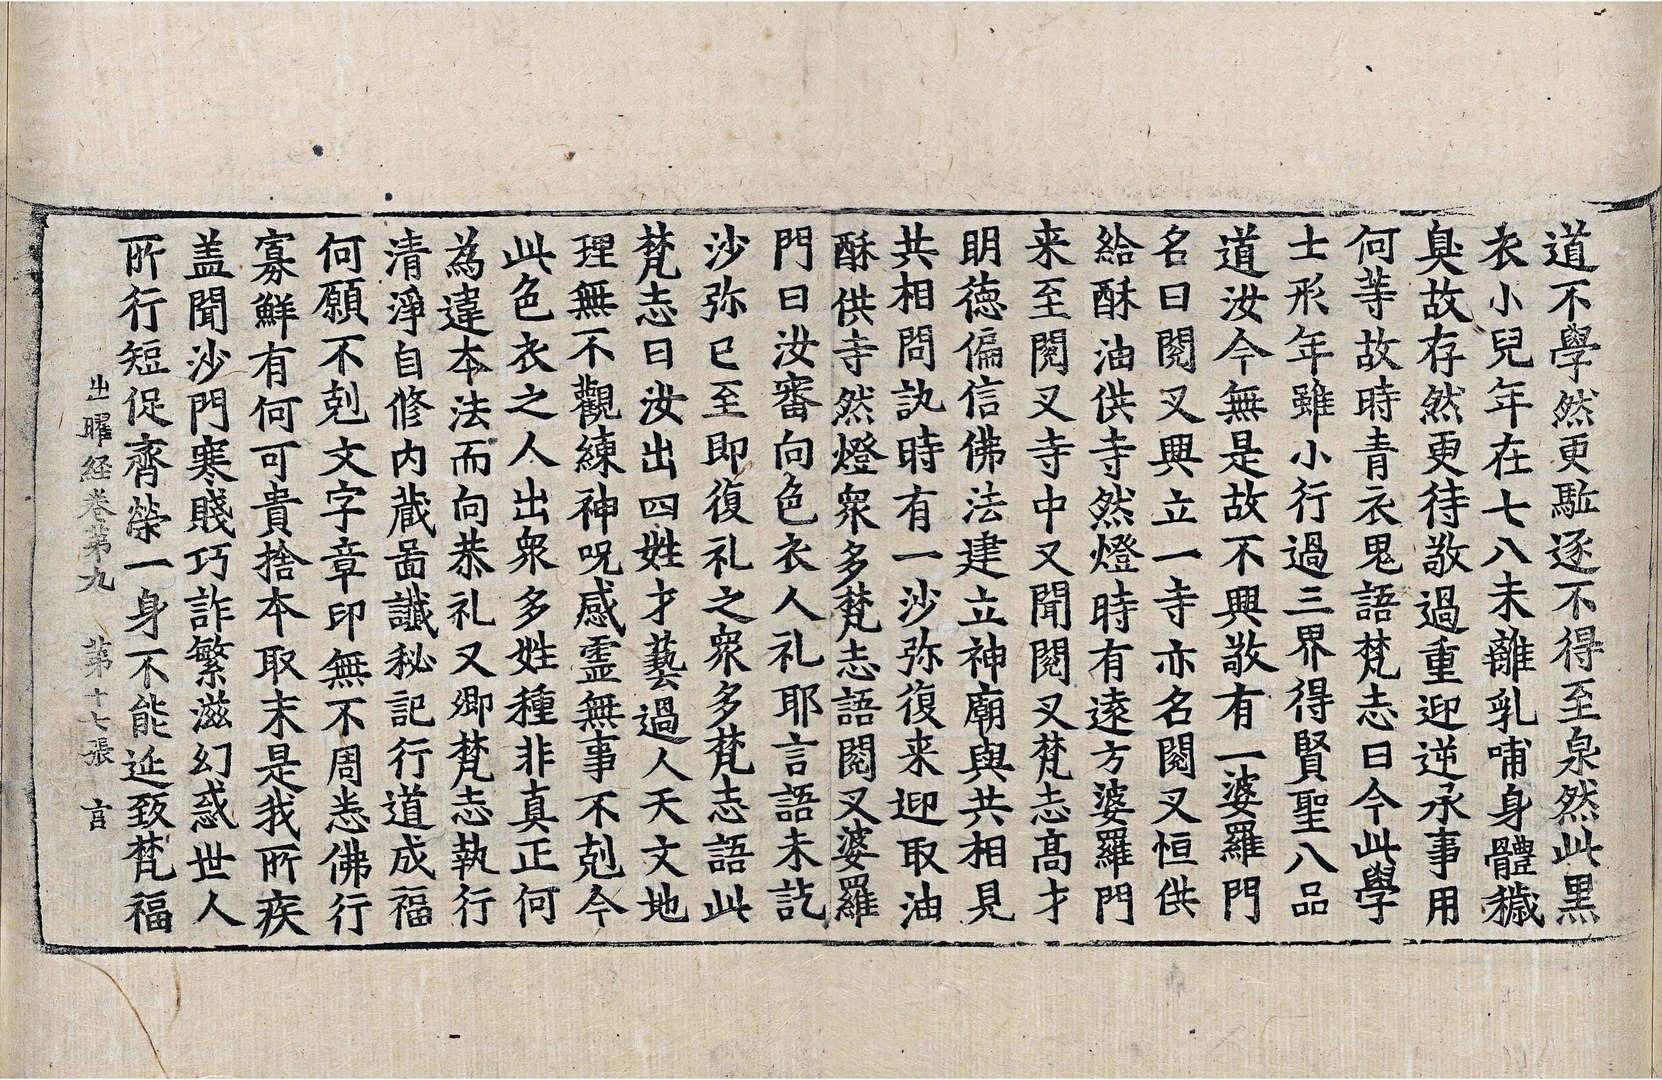 道不學然更駈逐不得至泉然此黑
衣小兒年在七八未離乳哺身體穢
臭故存然更待敬過重迎逆承事用
何等故時青衣鬼語梵志曰今此學
士形年雖小行過三界得賢聖八品
道汝今無是故不興敬有一婆羅門
名曰閱叉興立一寺亦名閱叉恒供
給酥油供寺然燈時有遠方婆羅門
来至閱叉寺中又聞閱叉梵志高才
明德偏信佛法建立神廟與共相見
共相問訊時有一沙弥復来迎取油
酥供寺然燈衆多梵志語閱叉婆羅
門曰汝審向色衣人礼耶言語未訖
沙弥已至即復礼之衆多梵志語此
梵志曰汝出四姓才藝過人天文地
理無不觀練神呪感靈無事不剋今
此色衣之人出衆多姓種非真正何
為違本法而向恭礼又卿梵志執行
清淨自修内蔵啚讖秘記行道成福
何願不剋文字章印無不周悉佛行
寡鮮有何可貴捨本取末是我所疾
盖聞沙門寒賤巧詐繁滋幻惑世人
所行短促齊榮一身不能延致梵福
出曜経卷第九　第十七張　言